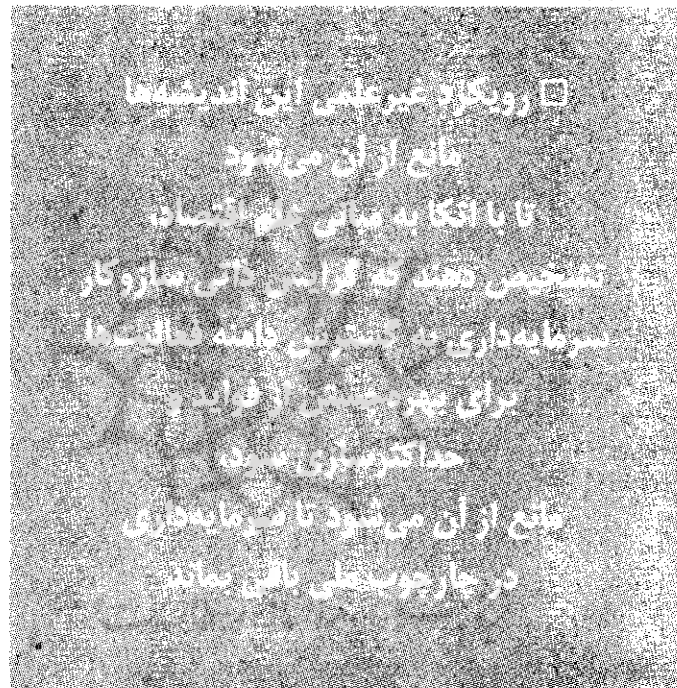 □ رویکرد غیرعلمی این اندیشه‌ها
مانع از آن می‌شود
تا با اتکا به مبانی علم اقتصاد،
تشخیص دهند که گرایش ذاتی سازوکار
سرمایه‌داری به گسترش دامنه فعالیت‌ها
برای بهره‌جستن از فواید و
حداکثرسازی سود،
مانع از آن می‌شود تا سرمایه‌داری
در چارچوب ملی باقی بماند.